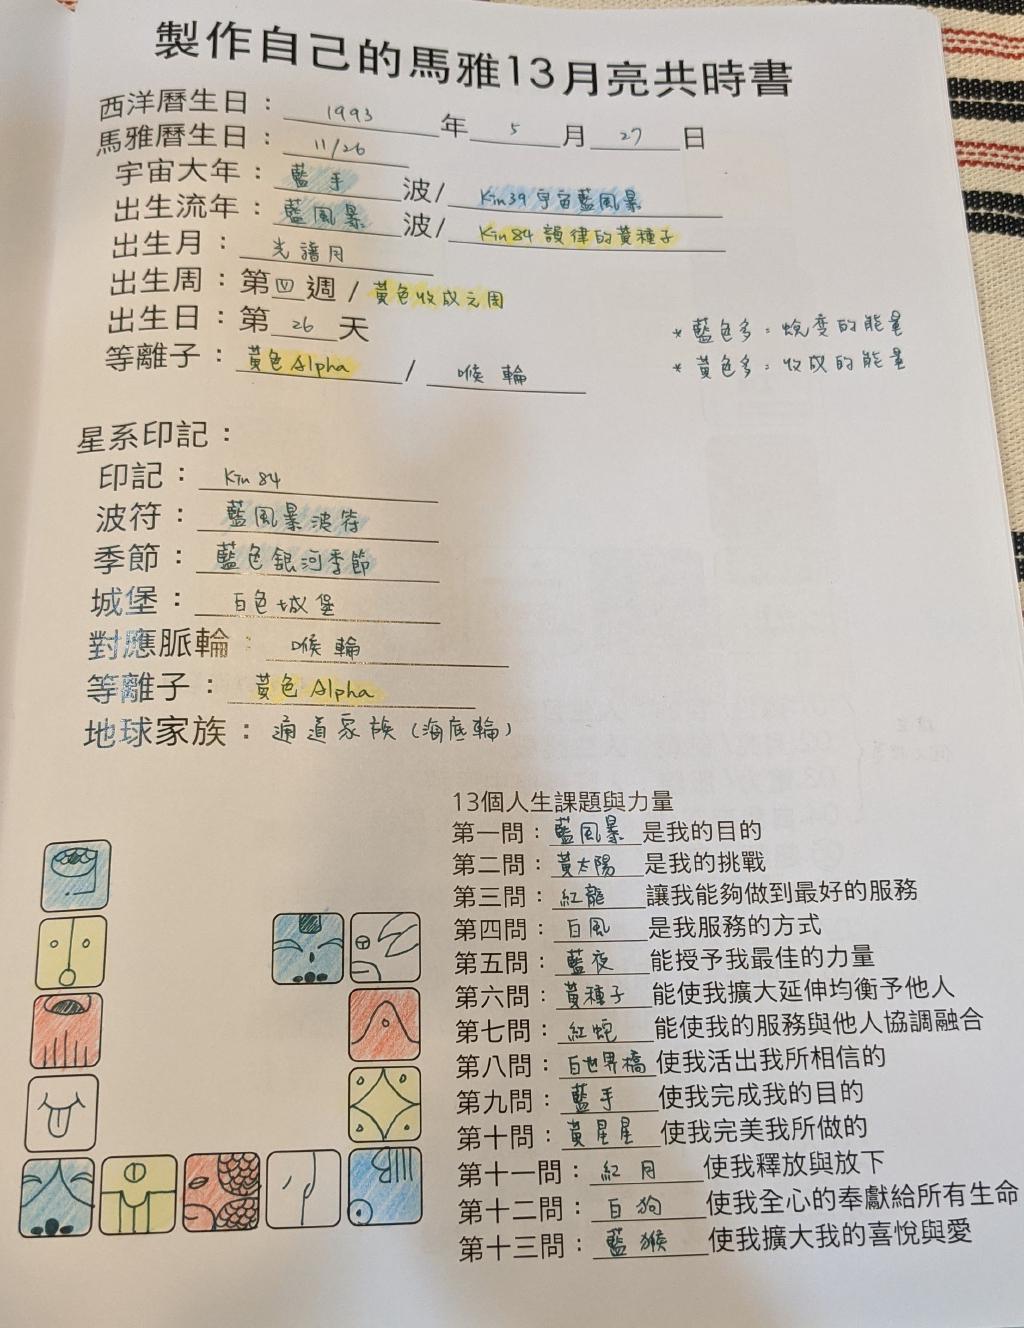 製作自己的馬雅13月亮共時書
西洋曆生日：1993年5月27日
馬雅曆生日：11/26
宇宙大年：藍手波/Kin39宇宙藍風暴
出生流年：藍風暴波/Kin84韻律的黃種子
出生月：光譜月
出生周：第四週/黃色收成之周
出生日：第26天
等離子：黃色Alpha/喉輪
*藍色多：蛻变的能量
*黃色多：收成的能量
星系印記：
印記：Kin84
波符：藍風暴波符
季節：藍色銀河季節
城堡：白色城堡
對應脈輪：喉輪
等離子：黃色Alpha
地球家族：通道家族(海底輪)
13個人生課題與力量
第一問：藍風暴是我的目的
第二問：黃太陽是我的挑戰
第三問：紅龍讓我能夠做到最好的服務
第四問：白風是我服務的方式
第五問：藍夜能授予我最佳的力量
第六問：黃種子能使我擴大延伸均衡予他人
第七問：紅蛇能使我的服務與他人協調融合
第八問：白世界橋使我活出我所相信的
第九問：藍手使我完成我的目的
第十問：黃星星使我完美我所做的
第十一問：紅月使我釋放與放下
第十二問：白狗使我全心的奉獻給所有生命
第十三問：藍猴使我擴大我的喜悅與愛